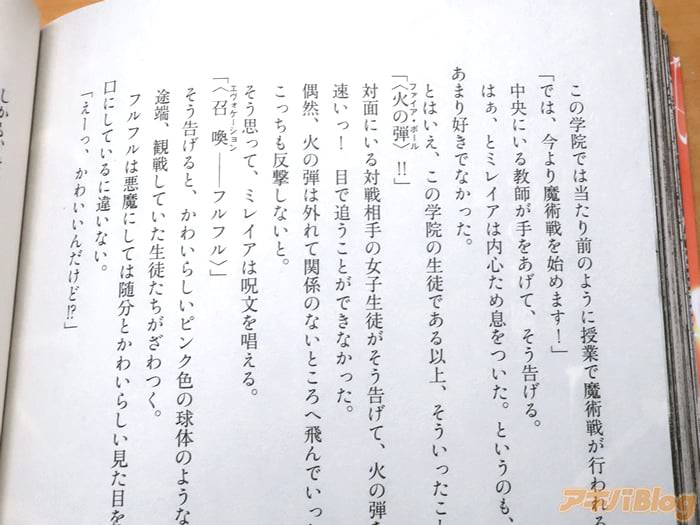 この学院では当たり前のように授業で魔術戦が行われる
「では、今より魔術戦を始めます！」
中央にいる教師が手をあげて、そう告げる。
はぁ、とミレイアは内心ため息をついた。というのも、
あまり好きでなかった。
とはいえ、この学院の生徒である以上、そういったこと
「〈火の弾〉!!」
ファイア・ボール
対面にいる対戦相手の女子生徒がそう告げて、火の弾を
速いっ！　目で追うことができなかった。
偶然、火の弾は外れて関係のないところへ飛んでいっ
こっちも反撃しないと。
そう思って、ミレイアは呪文を唱える。
「〈召喚――フルフル〉」
エヴォケーション
そう告げると、かわいらしいピンク色の球体のような
途端、観戦していた生徒たちがざわつく。
フルフルは悪魔にしては随分とかわいらしい見た目を
口にしているに違いない。
「えーっ、かわいいんだけど!?」
アキバBlog